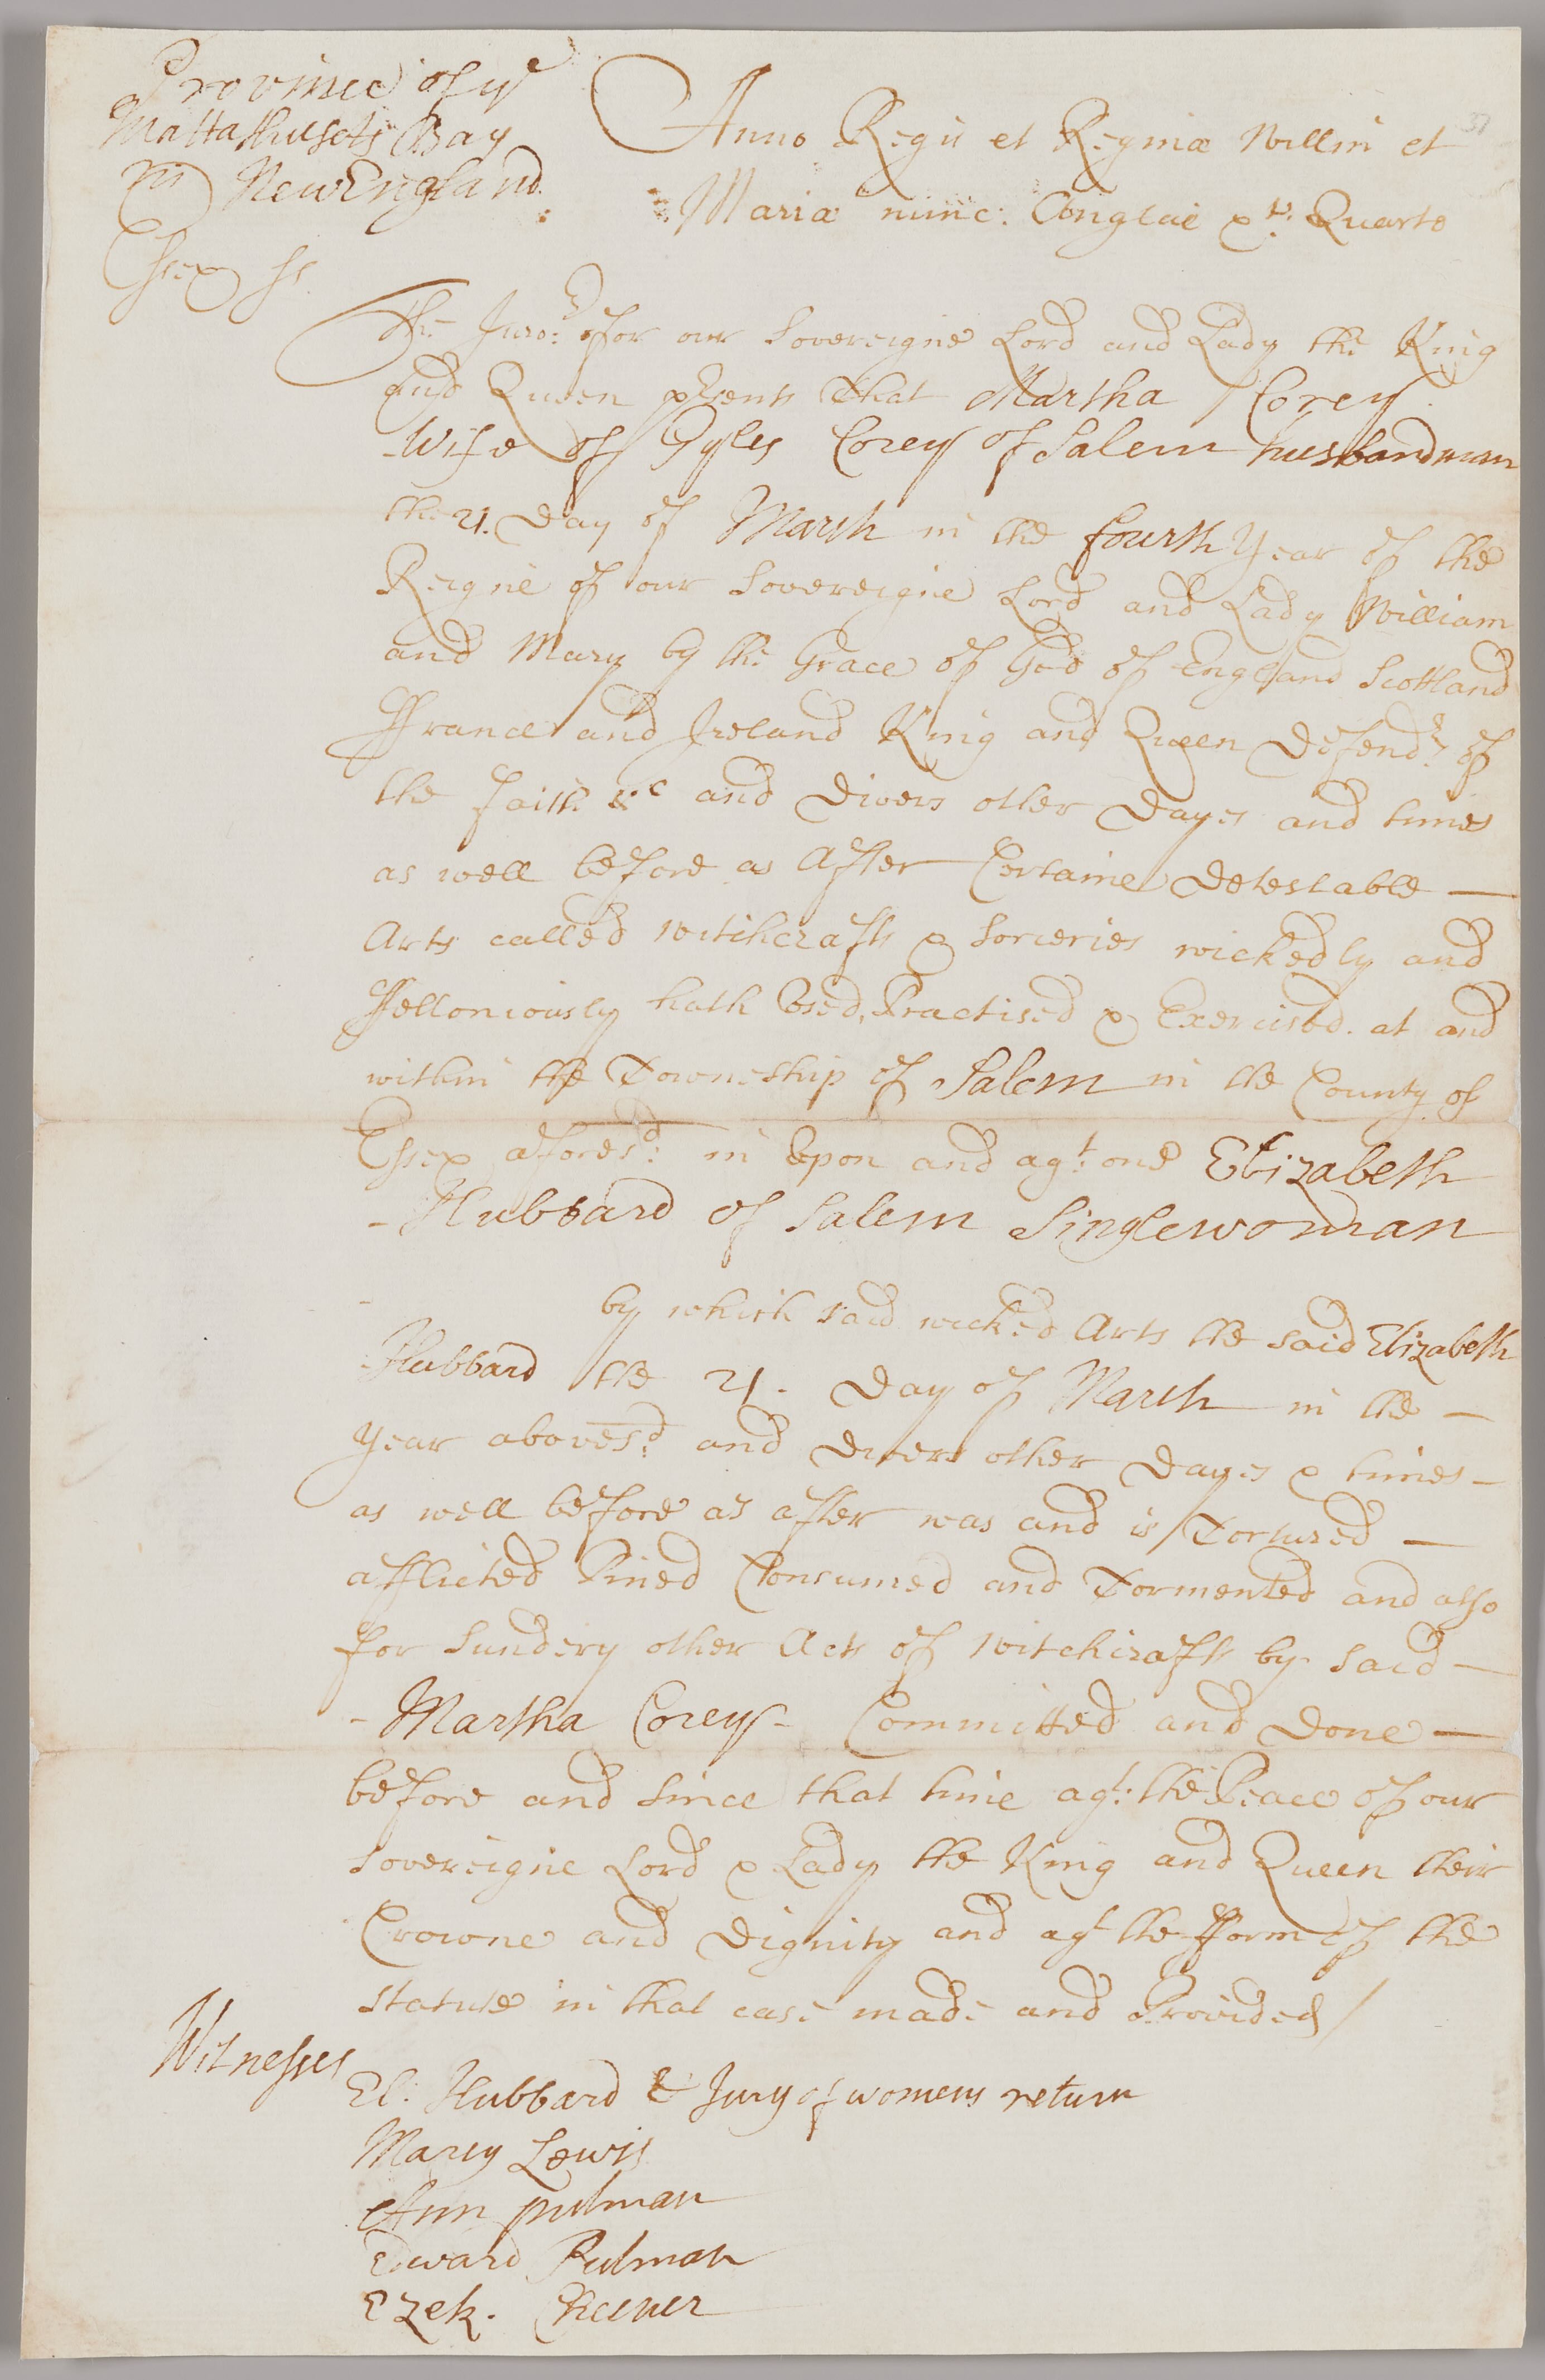 Province of ye
Mattathusets Bay
in NewEngland
Essex ss
Anno Regis et Reginæ Willm et
Mariæ nunc: Angliæ &c: Quarto
37
The Juro:rs for our Sovereigne Lord and Lady the King
and Queen p'sents That Martha Corey
Wife of Gyles Corey of Salem husbandman
the 21. Day of March in the fourth Year of the
Reigne of our Sovereigne Lord and Lady William
and Mary by the Grace of God of England Scottland
ffrance and Ireland King and Queen Defendrs of
the faith &c and Divers other Dayes and times
as well before as After Certaine Detestable —
Arts called witchcrafts & Sorceries wickedly and
ffelloniously hath Vsed, Practised & Exercised. at and
within the Towneship of Salem in the County of
Essex aforesd: in Vpon and agt: one Elizabeth
- Hubbard of Salem Singlewoman
by which said wicked Arts the said Elizabeth
Hubbard the 21. Day of March in the —
Year abovesd: and Divers other Dayes & times —
as well before as after was and is Tortured —
afflicted Pined Consumed and Tormented and also
for Sundery other Acts of witchcrafts by said —
- Martha Corey - Committed and Done —
before and Since that time agt: the Peace of our
Sovereigne Lord & Lady the King and Queen their
Crowne and Dignity and agt the fform of the
statute in that case made and Provided /
Witnesses
El: Hubbard & Jury of womens return
Marcy Lewis
Ann putman
Edward Putman
Ezek. Cheever